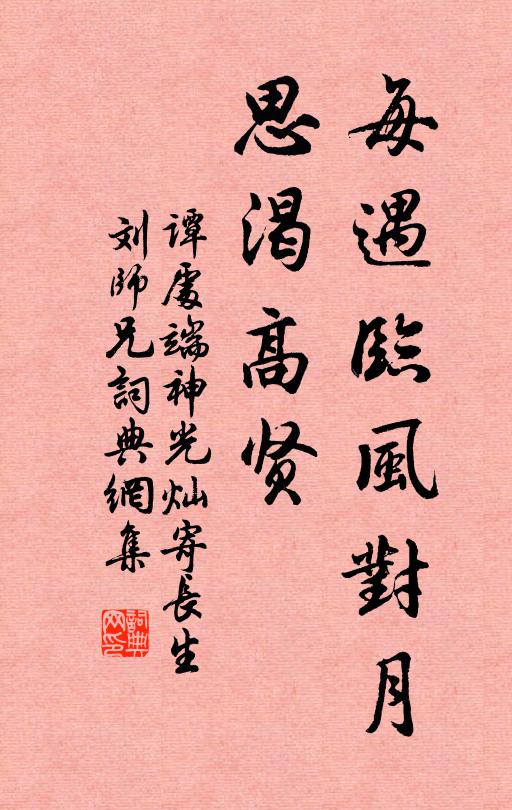 每遇臨風對月
思渴高贤
谭處端神光灿寄長生
刘師兄詞典網集
詞典
网印